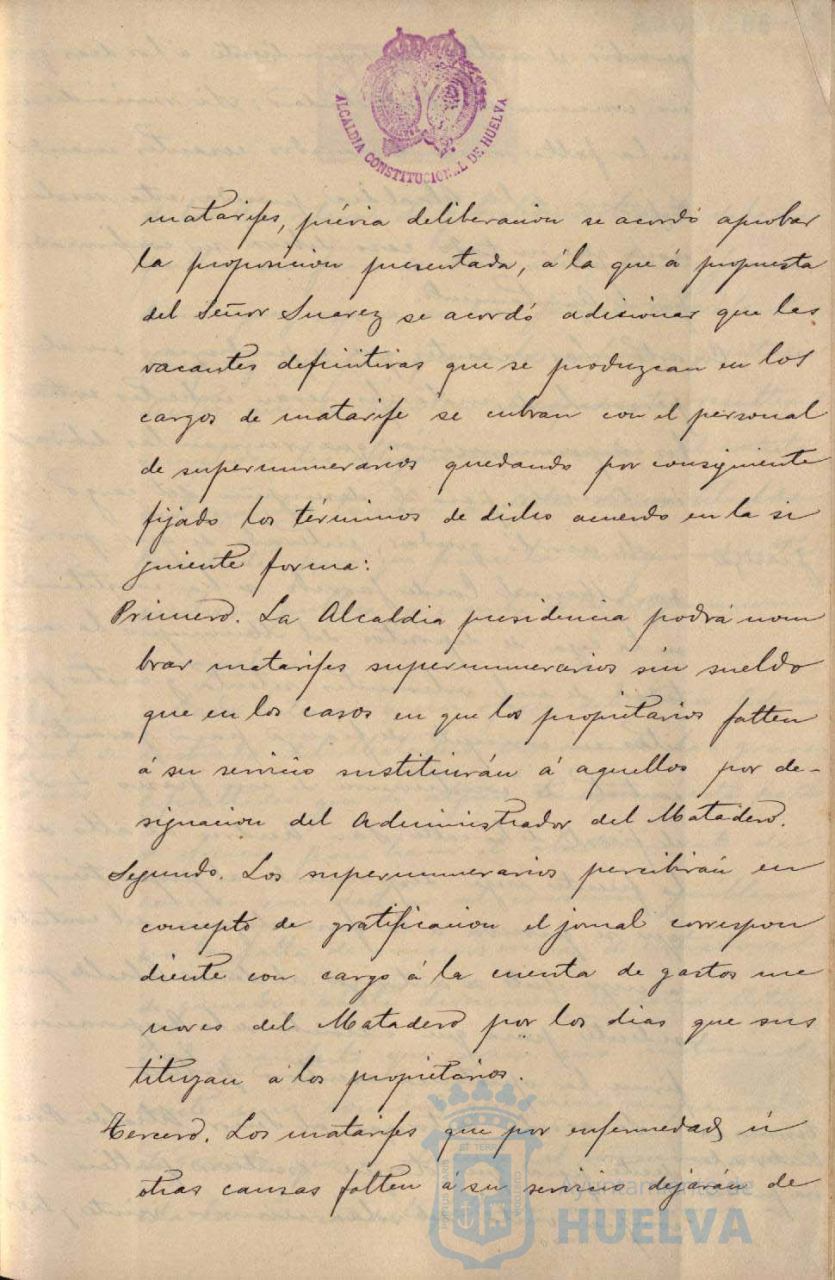 ALCALDIA CONSTITUCIONAL DE HUELVA
matarifes, prévia deliberacion se acordó aprobar
la proposicion presentada, á la que á propuesta
del Señor Suarez se acordó adicionar que las
vacantes definitivas que se produzcan en los
cargos de matarife se cubran con el personal
de supernumerarios quedando por consiguiente
fijado los términos de dicho acuerdo en la si
guiente forma:
Primero. La Alcaldia presidencia podrá nom
brar matarifes supernumerarios sin sueldo
que en los casos en que los propietarios falten
á su servicio sustituirán á aquellos por de-
signacion del Administrador del Matadero.
Segundo. Los supernumerarios percibirán en
concepto de gratificacion el jornal correspon
diente con cargo á la cuenta de gastos me
nores del Matadero por los dias que sus
tituyan a los propietarios.
Tercero. Los matarifes que por enfermedad ú
otras causas falten á su servicio dejarán de
Ayuntamiento de
HUELVA